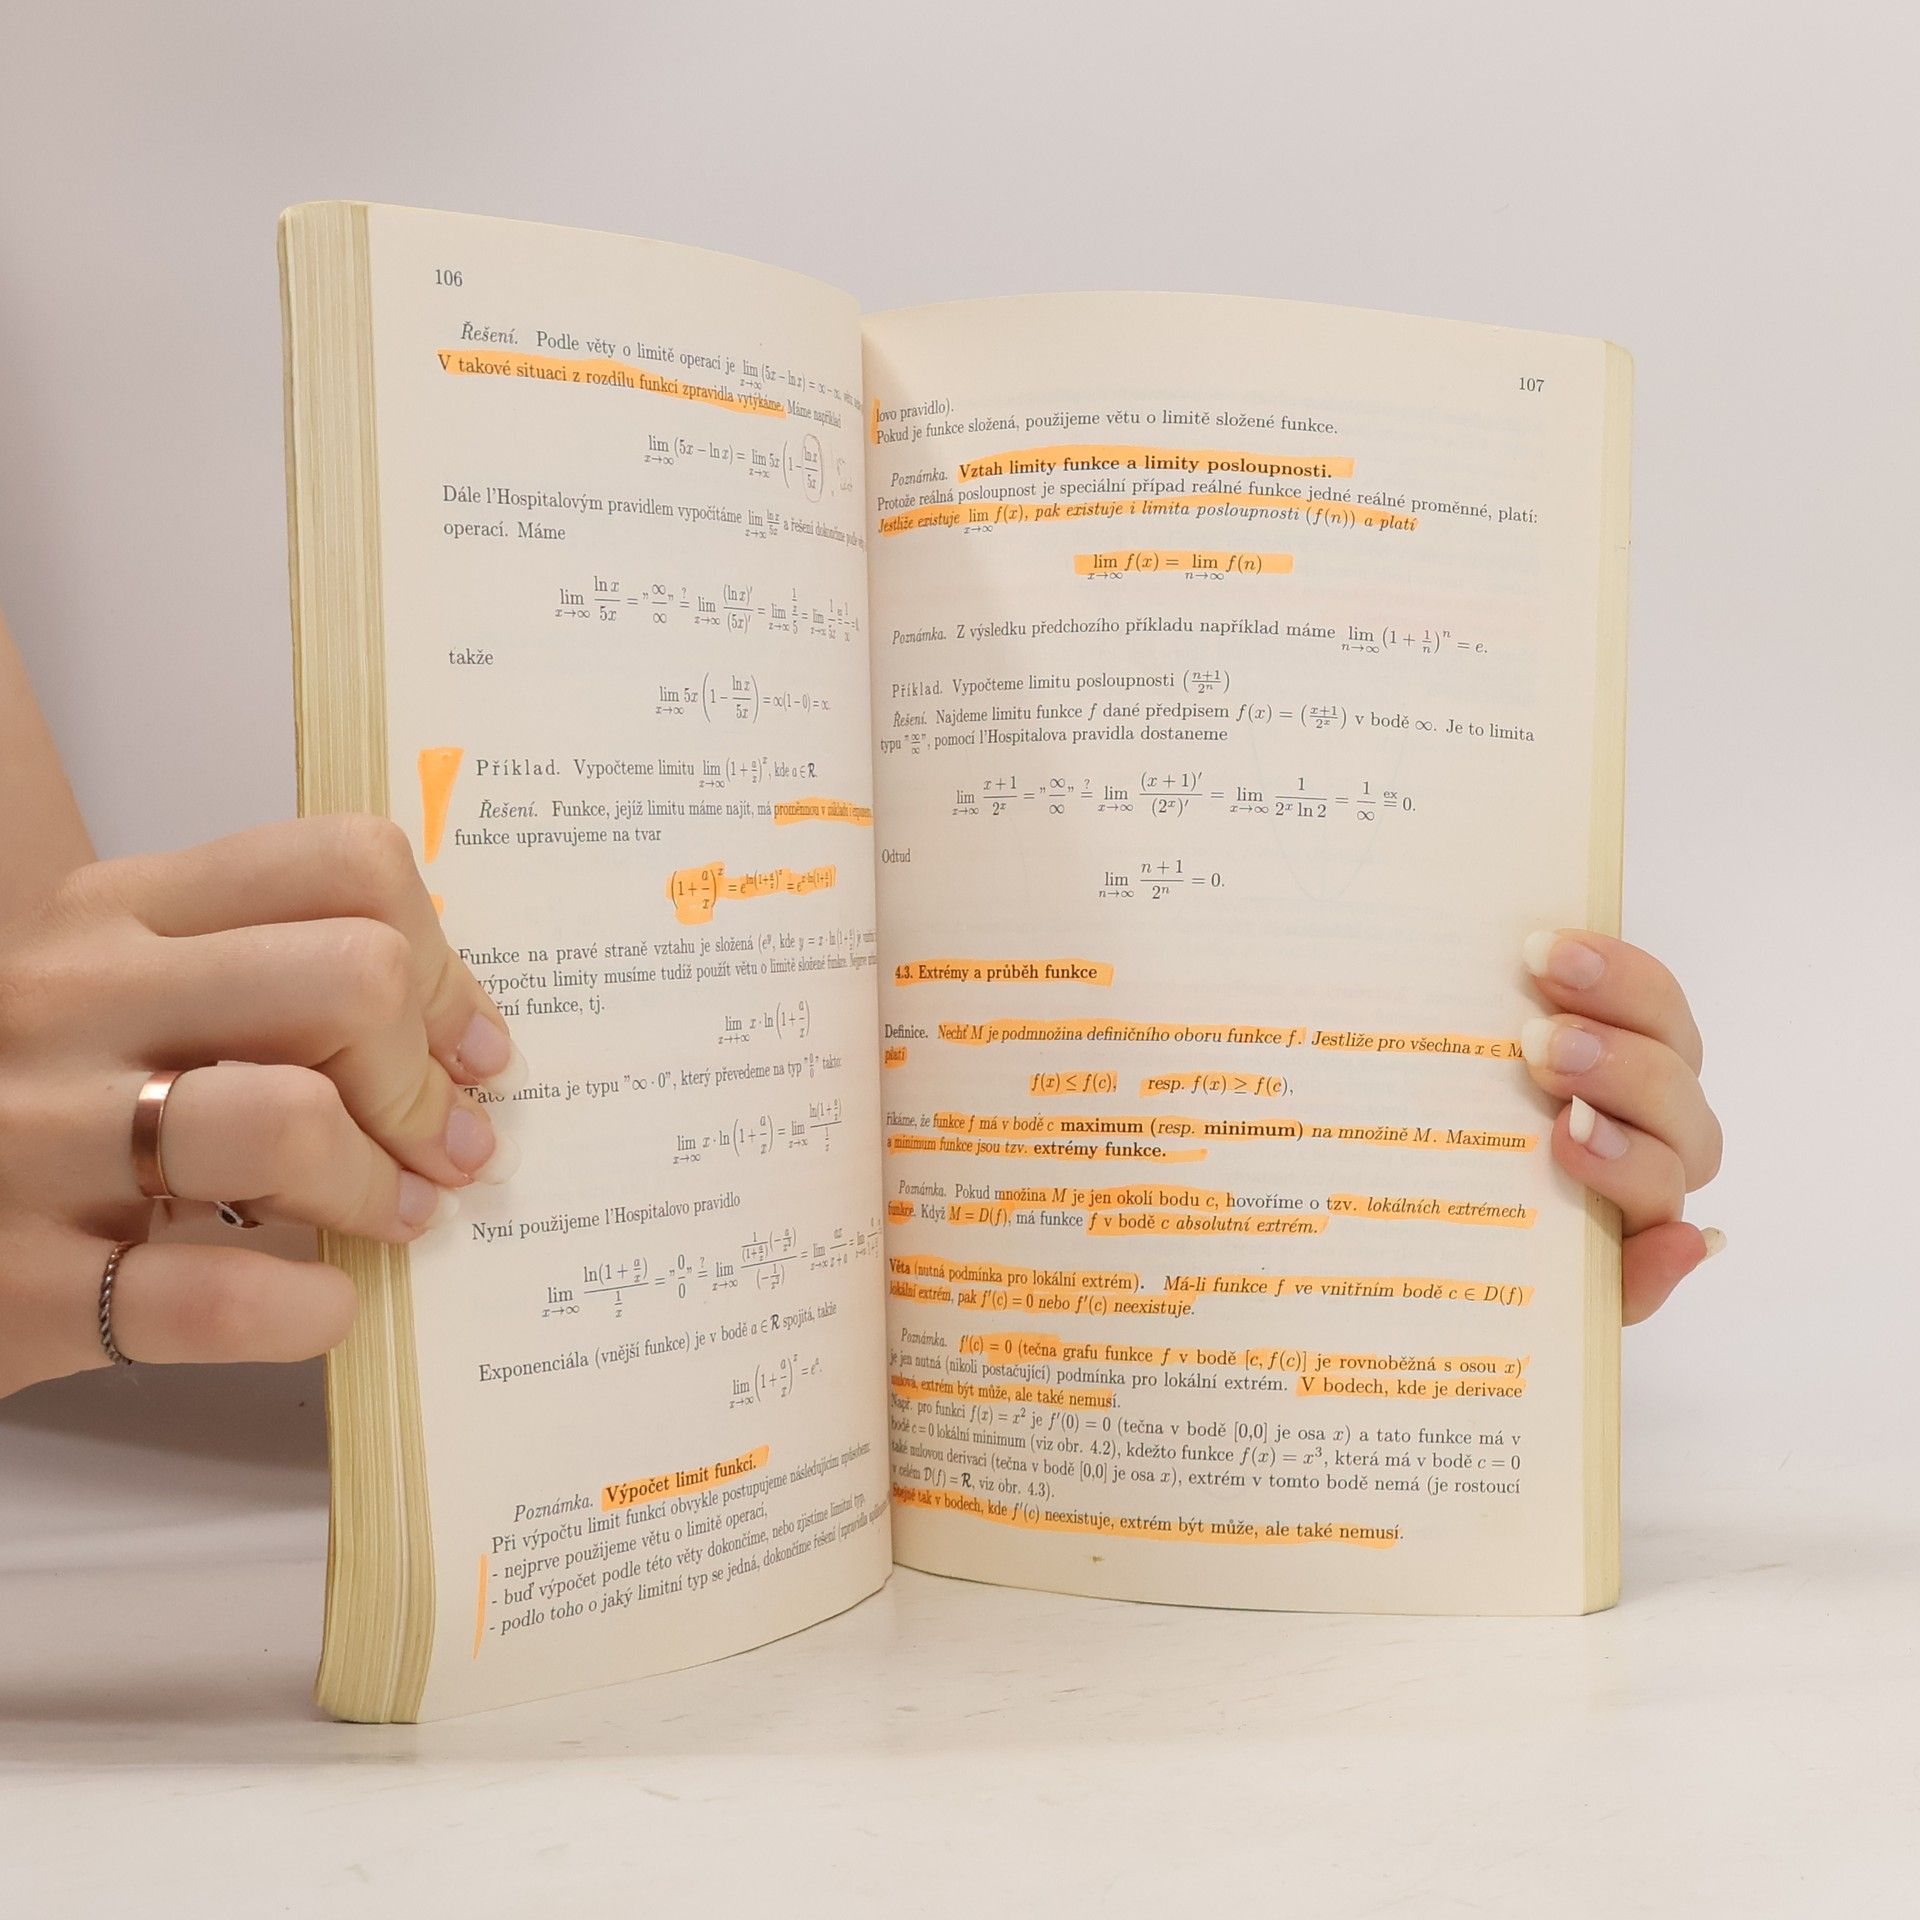 106
Řešení. Podle věty o limitě operací je lim x→∞ (5x − ln x) = ∞ − ∞,
V takové situaci z rozdílu funkcí zpravidla vytýkáme. Máme například
lim x→∞ (5x − ln x) = lim x→∞ 5x (1 − ln x / 5x)
Dále l'Hospitalovým pravidlem vypočítáme lim x→∞ ln x / 5x a řešení dokončíme podle
operací. Máme
lim x→∞ ln x / 5x = "∞/∞" ?= lim x→∞ (ln x)' / (5x)' = lim x→∞ (1/x) / 5 = lim x→∞ 1 / 5x ex= 1/∞ = 0,
takže
lim x→∞ 5x (1 − ln x / 5x) = ∞(1 − 0) = ∞.
Příklad. Vypočteme limitu lim x→∞ (1 + a/x)^x, kde a ∈ R.
Řešení. Funkce, jejíž limitu máme najít, má proměnnou v základu i exponentu
funkce upravujeme na tvar
(1 + a/x)^x = e^(ln(1 + a/x)^x) = e^(x·ln(1 + a/x))
Funkce na pravé straně vztahu je složená (e^y, kde y = x · ln(1 + a/x) je
výpočtu limity musíme tudíž použít větu o limitě složené funkce. Nejprve
funkce, tj.
lim x→+∞ x · ln (1 + a/x)
Tato limita je typu "∞ · 0", který převedeme na typ "0/0" takto:
lim x→∞ x · ln (1 + a/x) = lim x→∞ ln(1 + a/x) / (1/x)
Nyní použijeme l'Hospitalovo pravidlo
lim x→∞ ln(1 + a/x) / (1/x) = "0/0" ?= lim x→∞ (1/(1 + a/x)) (−a/x²) / (−1/x²) = lim x→∞ ax / (x + a) = lim
Exponenciála (vnější funkce) je v bodě a ∈ R spojitá, takže
lim x→∞ (1 + a/x)^x = e^a.
Poznámka. Výpočet limit funkcí.
Při výpočtu limit funkcí obvykle postupujeme následujícím způsobem:
- nejprve použijeme větu o limitě operací,
- buď výpočet podle této věty dokončíme, nebo zjistíme limitní typ,
- podlo toho o jaký limitní typ se jedná, dokončíme řešení (zpravidla
107
lovo pravidlo).
Pokud je funkce složená, použijeme větu o limitě složené funkce.
Poznámka. Vztah limity funkce a limity posloupnosti.
Protože reálná posloupnost je speciální případ reálné funkce jedné reálné proměnné, platí:
Jestliže existuje lim x→∞ f(x), pak existuje i limita posloupnosti (f(n)) a platí
lim x→∞ f(x) = lim n→∞ f(n)
Poznámka. Z výsledku předchozího příkladu například máme lim n→∞ (1 + 1/n)^n = e.
Příklad. Vypočteme limitu posloupnosti ((n+1)/2^n)
Řešení. Najdeme limitu funkce f dané předpisem f(x) = ((x+1)/2^x) v bodě ∞. Je to limita
typu "∞/∞", pomocí l'Hospitalova pravidla dostaneme
lim x→∞ (x + 1) / 2^x = "∞/∞" ?= lim x→∞ (x + 1)' / (2^x)' = lim x→∞ 1 / (2^x ln 2) = 1/∞ ex= 0.
Odtud
lim n→∞ (n + 1) / 2^n = 0.
4.3. Extrémy a průběh funkce
Definice. Nechť M je podmnožina definičního oboru funkce f. Jestliže pro všechna x ∈ M
platí
f(x) ≤ f(c), resp. f(x) ≥ f(c),
říkáme, že funkce f má v bodě c maximum (resp. minimum) na množině M. Maximum
a minimum funkce jsou tzv. extrémy funkce.
Poznámka. Pokud množina M je jen okolí bodu c, hovoříme o tzv. lokálních extrémech
funkce. Když M = D(f), má funkce f v bodě c absolutní extrém.
Věta (nutná podmínka pro lokální extrém). Má-li funkce f ve vnitřním bodě c ∈ D(f)
lokální extrém, pak f'(c) = 0 nebo f'(c) neexistuje.
Poznámka. f'(c) = 0 (tečna grafu funkce f v bodě [c, f(c)] je rovnoběžná s osou x)
je jen nutná (nikoli postačující) podmínka pro lokální extrém. V bodech, kde je derivace
nulová, extrém být může, ale také nemusí.
Např. pro funkci f(x) = x² je f'(0) = 0 (tečna v bodě [0,0] je osa x) a tato funkce má v
bodě c = 0 lokální minimum (viz obr. 4.2), kdežto funkce f(x) = x³, která má v bodě c = 0
také nulovou derivaci (tečna v bodě [0,0] je osa x), extrém v tomto bodě nemá (je rostoucí
v celém D(f) = R, viz obr. 4.3).
Stejně tak v bodech, kde f'(c) neexistuje, extrém být může, ale také nemusí.